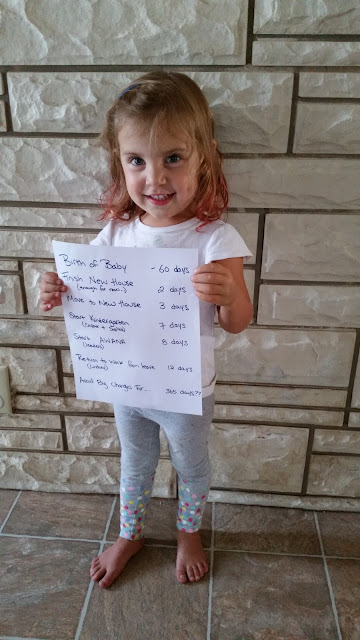 Birth of Baby - 60 days
Finish New House 2 days
(enough for now...)
Move to New House 3 days
Start Kindergarten 7 days
Start AWANA 8 days
(leaders)
Return to work from leave 12 days
Avoid Big Changes For... 365 days??